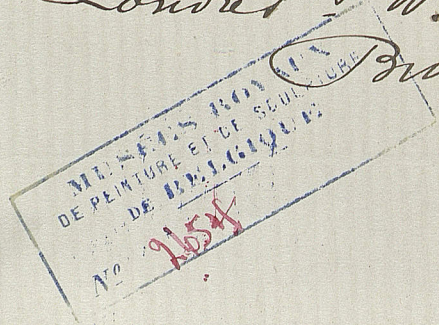 Londres
MUSÉES ROYAUX
DE PEINTURE ET DE SCULPTURE
DE BELGIQUE
Nº 2654